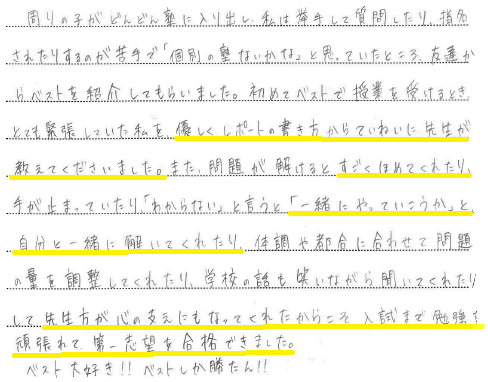 周りの子がどんどん塾に入り出し、私は挙手して質問したり、指名
されたりするのが苦手で「個別の塾ないかな」と思っていたところ、友達か
らベストを紹介してもらいました。初めてベストで授業を受けるとき、
とても緊張していた私を、優しくレポートの書き方からていねいに先生が
教えてくださいました。また、問題が解けるとすごくほめてくれたり、
手が止まっていたり、「わからない」と言うと「一緒にやっていこうか」と、
自分と一緒に解いてくれたり、体調や都合に合わせて問題
の量を調整してくれたり、学校の話も笑いながら聞いてくれたり
して先生方が心の支えにもなってくれたからこそ入試まで勉強を
頑張れて第一志望を合格できました。
ベスト大好き!! ベストしか勝たん!!